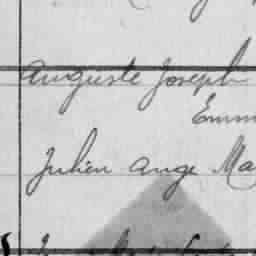 Auguste Joseph
Emm
Julien Ange Ma